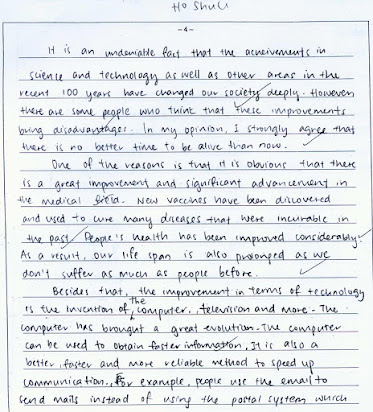 Ho Shuli
-4-
It is an undeniable fact that the acheivements in
science and technology as well as other areas in the
recent 100 years have changed our society deeply. However
there are some people who think that these improvements
bring disadvantages. In my opinion, I strongly agree that
there is no better time to be alive than now.
One of the reasons is that it is obvious that there
is a great improvement and significant advancement in
the medical field. New vaccines have been discovered
and used to cure many diseases that were incurable in
the past. People's health has been improved considerably.
As a result, our life span is also prolonged as we
don't suffer as much as people before.
Besides that, the improvement in terms of technology
is the invention of the computer, television and more. The
computer has brought a great evolution. The computer
can be used to obtain faster information. It is also a
better, faster and more reliable method to speed up
communication. For example, people use the email to
send mails instead of using the postal system which